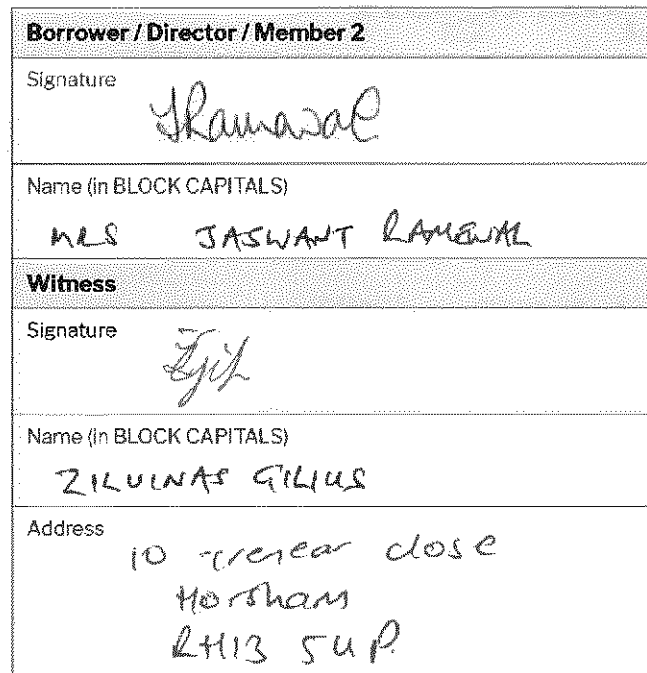 Borrower / Director / Member 2
Signature
Name (in BLOCK CAPITALS)
MRS JASWANT RAMEWAL
Witness
Signature
Name (in BLOCK CAPITALS)
ZILVINAS GILIUS
Address
10 close
Horsham
RH13 5UP